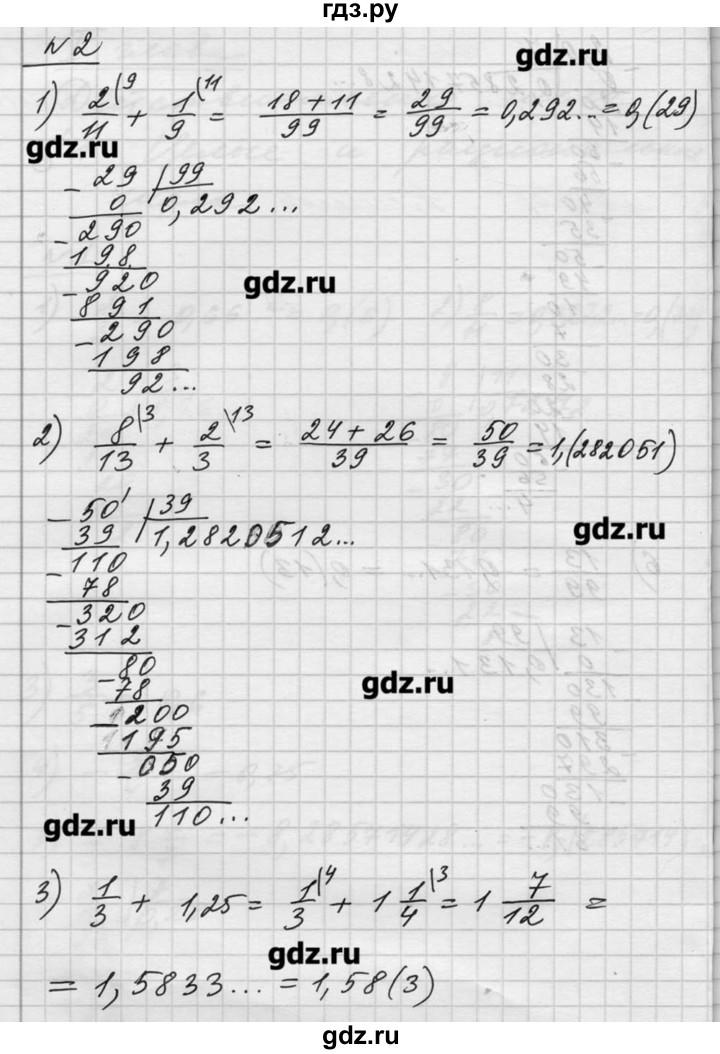 гдз.ру
№2
gdz.ru
1) 2/11 \9 + 1/9 \11 = 18+11/99 = 29/99 = 0,292... = 0,(29)
gdz.ru
- 29 | 99
0 0,292...
- 290
198
gdz.ru
- 920
891
- 290
198
92...
2) 8/13 \3 + 2/3 \13 = 24+26/39 = 50/39 = 1,(282051)
- 50 | 39
39 1,2820512...
gdz.ru
- 110
78
- 320
312
- 80
78
gdz.ru
- 200
195
- 050
39
110...
gdz.ru
3) 1/3 + 1,25 = 1/3 \4 + 1 1/4 \3 = 1 7/12 =
gdz.ru
= 1,5833... = 1,58(3)
gdz.ru